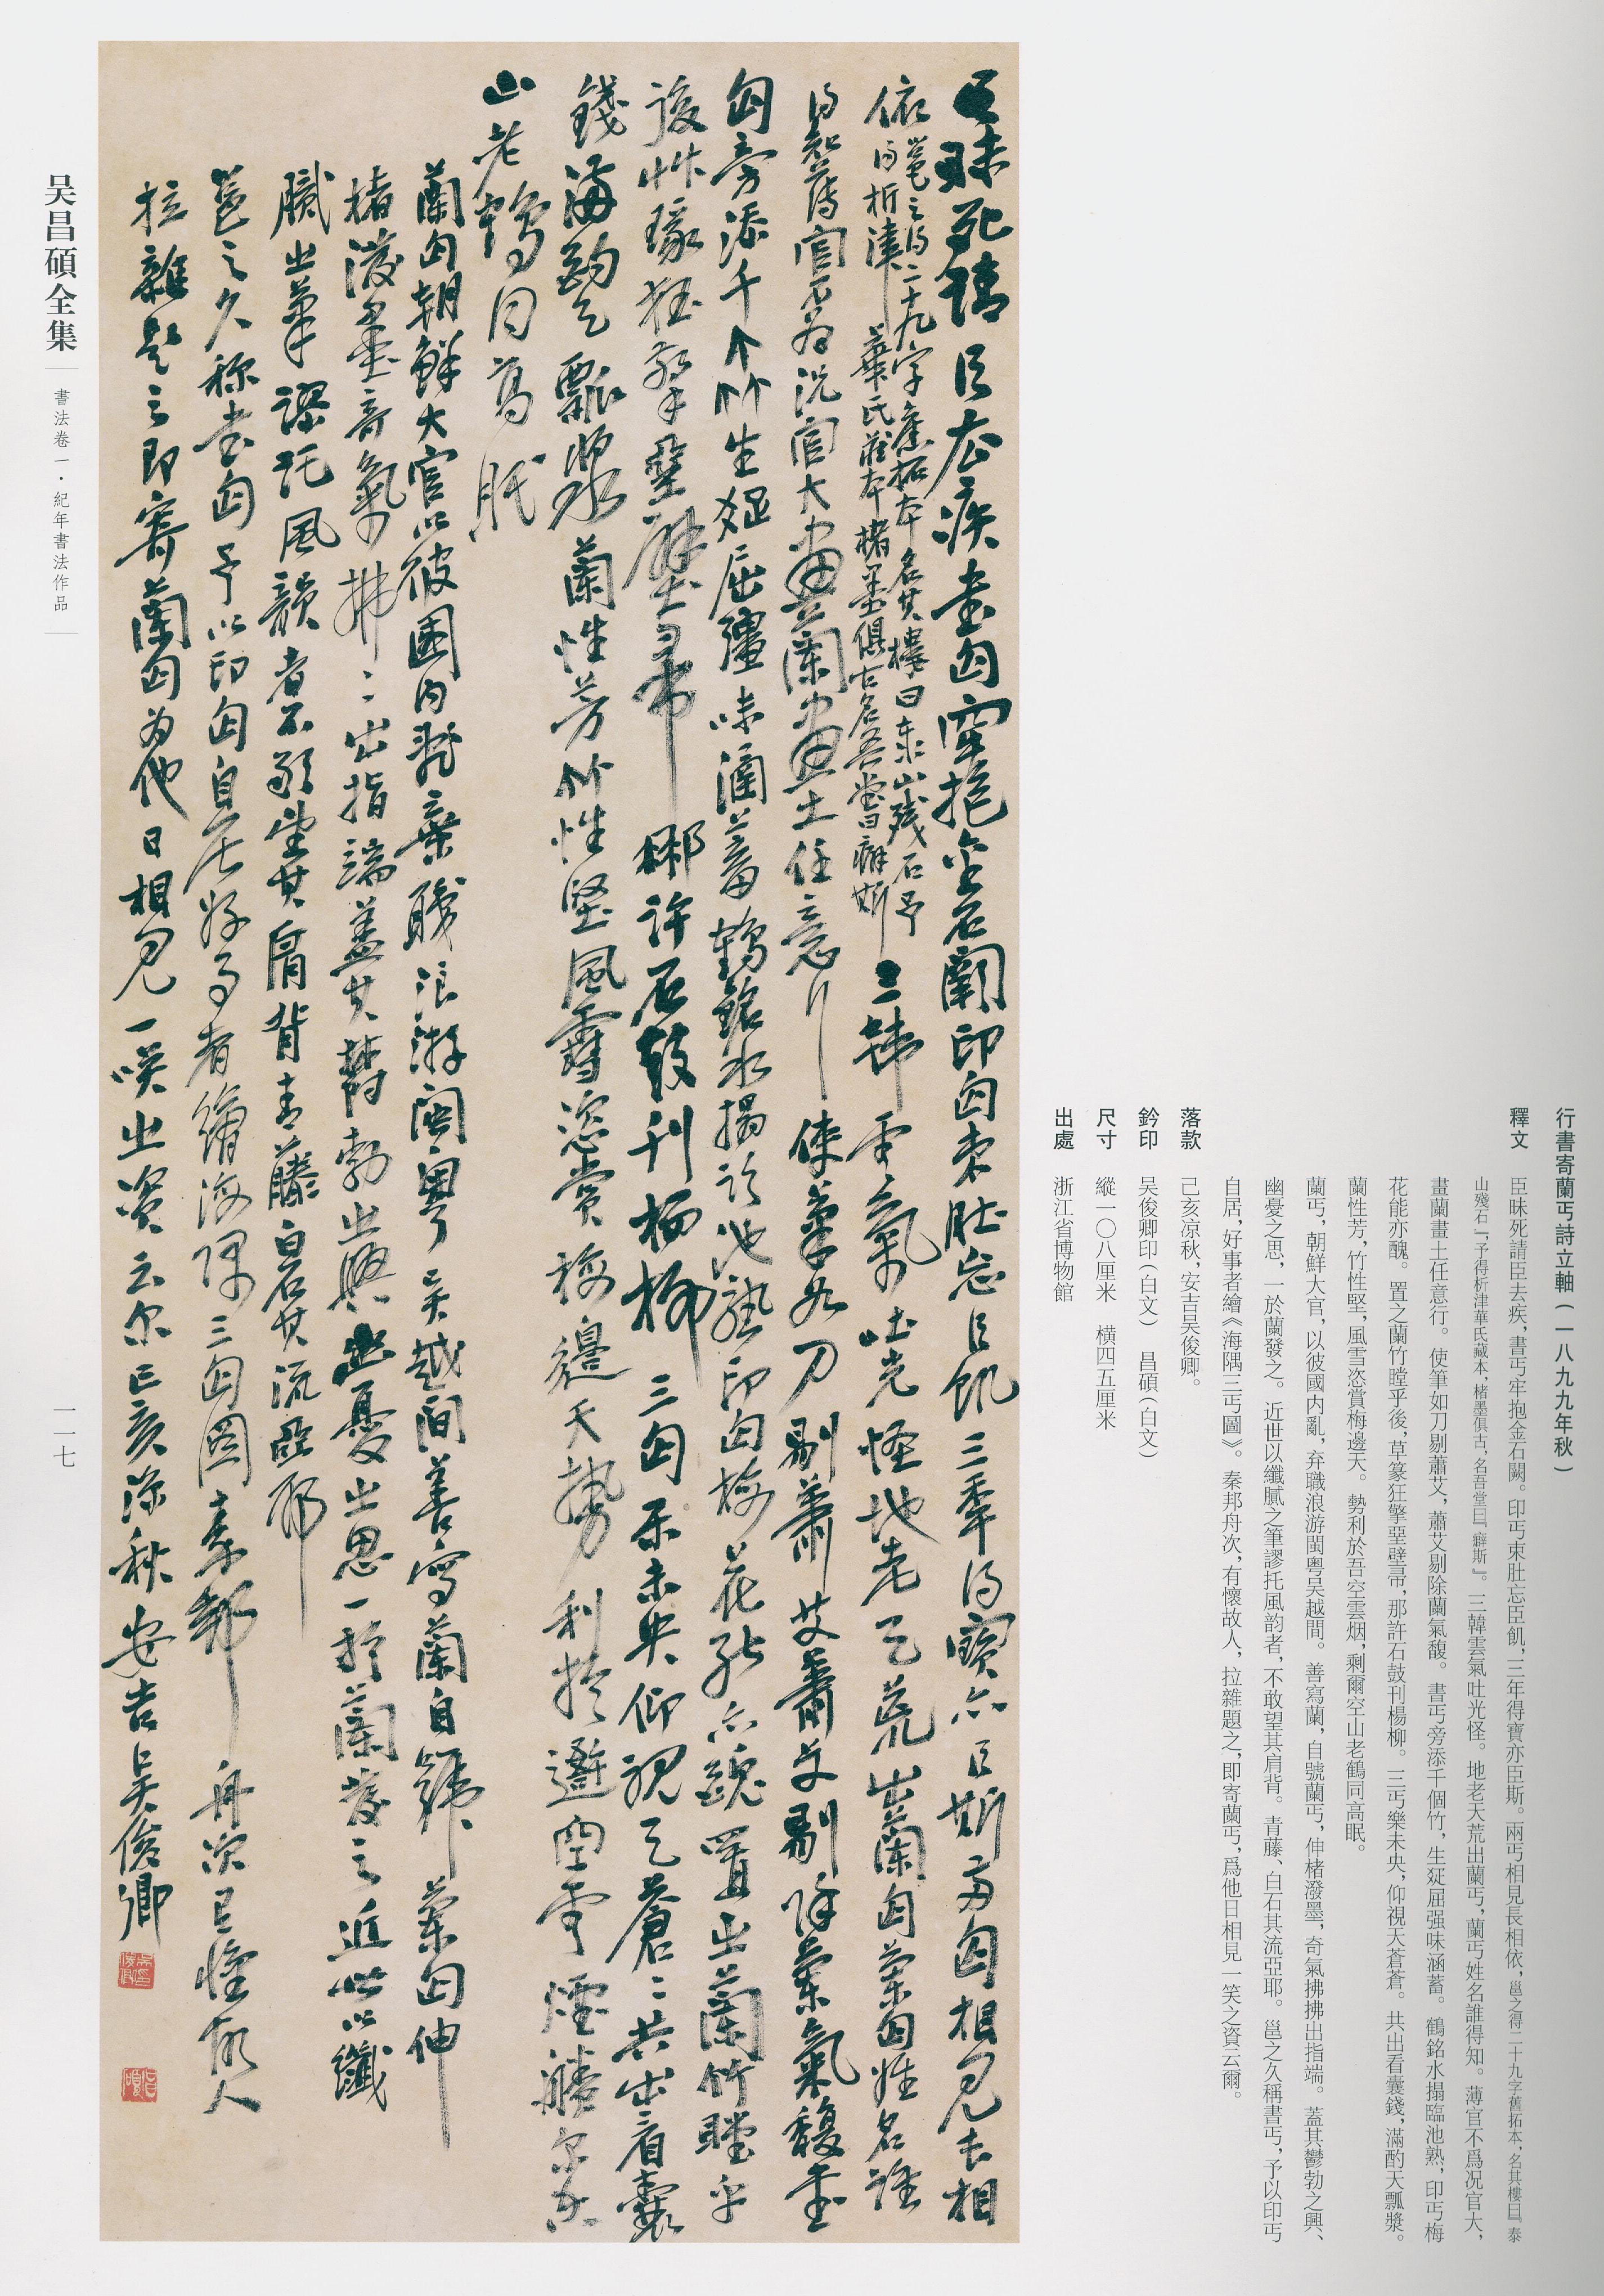 行書寄蘭丐詩立軸(一八九九年秋)
釋文 臣昧死請臣去疾,書丐牢抱金石闕。印丐束肚忘臣飢,三年得寶亦臣斯。兩丐相見長相依,邕之得二十九字舊拓本,名其樓曰『泰
山殘石』,予得析津華氏藏本,楮墨俱古,名吾堂曰『癖斯』。三韓雲氣吐光怪。地老天荒出蘭丐,蘭丐姓名誰得知。薄官不爲況官大,
畫蘭畫土任意行。使筆如刀剔蕭艾,蕭艾剔除蘭氣馥。書丐旁添千個竹,生㲄屈强味涵蓄。鶴銘水搨臨池熟,印丐梅
花能亦醜。置之蘭竹瞠乎後,草篆狂擎堊壁帚,那許石鼓刊楊柳。三丐樂未央,仰視天蒼蒼。共出看囊錢,滿酌天瓢漿。
蘭性芳,竹性堅,風雪恣賞梅邊天。勢利於吾空雲烟,剩爾空山老鶴同高眠。
蘭丐,朝鮮大官,以彼國内亂,弃職浪游閩粤吴越間。善寫蘭,自號蘭丐,伸楮潑墨,奇氣拂拂出指端。蓋其鬱勃之興、
幽憂之思,一於蘭發之。近世以纖膩之筆謬托風韵者,不敢望其肩背。青藤、白石其流亞耶。邕之久稱書丐,予以印丐
自居,好事者繪《海隅三丐圖》。秦邦舟次,有懷故人,拉雜題之,即寄蘭丐,爲他日相見一笑之資云爾。
落款 己亥凉秋,安吉吴俊卿。
鈐印 吴俊卿印(白文) 昌碩(白文)
尺寸 縱一〇八厘米 橫四五厘米
出處 浙江省博物館
臣昧死請臣去疾書丐牢抱金石闕印丐束肚忘臣飢三年得寶亦臣斯兩丐相見長相
依邕之得二十九字舊拓本名其樓曰泰山殘石予
得析津華氏藏本楮墨俱古名吾堂曰癖斯三韓雲氣吐光怪地老天荒出蘭丐蘭丐姓名誰
得知薄官不爲況官大畫蘭畫土任意行使筆如刀剔蕭艾蕭艾剔除蘭氣馥書
丐旁添千个竹生㲄屈彊味涵蓄鶴銘水搨臨池熟印丐梅花能亦醜置之蘭竹瞠乎
後草篆狂擎堊壁帚那許石鼓刊楊柳三丐樂未央仰視天蒼〻共出看囊
錢滿酌天瓢漿蘭性芳竹性堅風雪恣賞梅邊天勢利於吾空雲煙賸爾空
山老鶴同高眠
蘭丐朝鮮大官以彼國内亂棄職浪游閩粤吴越間善寫蘭自號蘭丐伸
楮潑墨奇氣拂〻出指端蓋其鬱勃之興幽憂之思一於蘭發之近世以纖
膩之筆謬託風韻者不敢望其肩背青藤白石其流亞耶
邕之久稱書丐予以印丐自居好事者繪海隅三丐圖秦邦舟次有懷故人
拉雜題之即寄蘭丐爲他日相見一笑之資云爾己亥涼秋安吉吴俊卿
吴昌碩全集
書法卷一·紀年書法作品
一一七